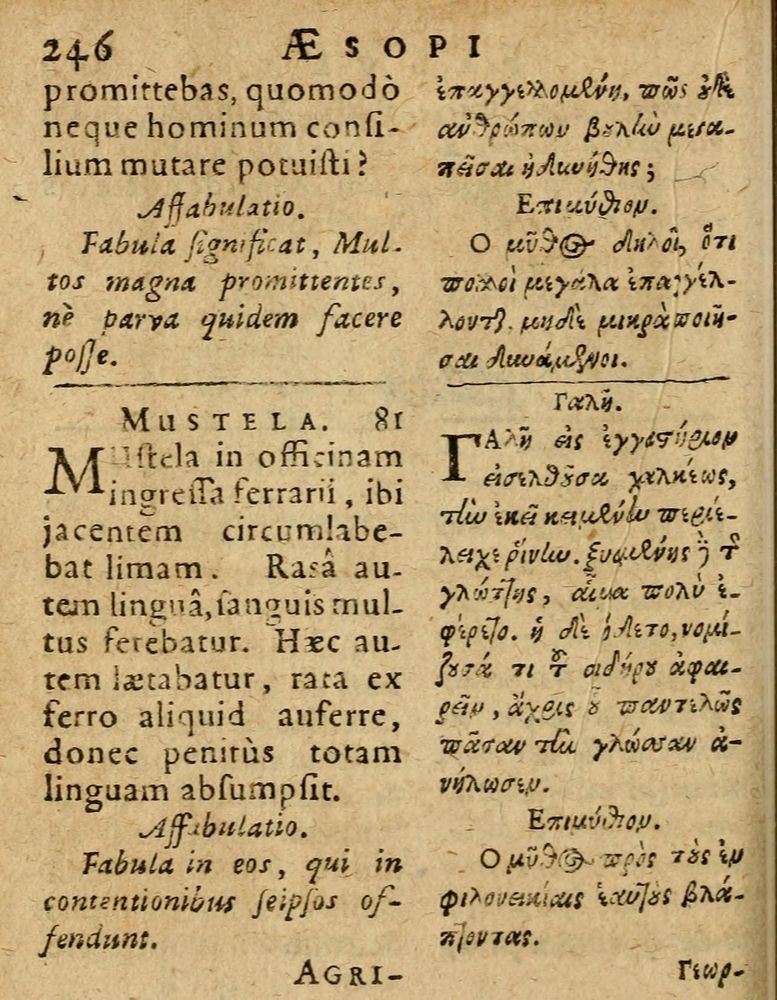 246 ÆSOPI
promittebas, quomodò
neque hominum conſi-
lium mutare potuiſti?
Affabulatio.
Fabula ſignificat, Mul-
tos magna promittentes,
nè parva quidem facere
poſſe.
MUSTELA. 81
MUſtela in officinam
ingreſſa ferrarii, ibi
jacentem circumlabe-
bat limam. Rasâ au-
tem linguâ, ſanguis mul-
tus ferebatur. Hæc au-
tem lætabatur, rata ex
ferro aliquid auferre,
donec penitùs totam
linguam abſumpſit.
Affabulatio.
Fabula in eos, qui in
contentionibus ſeipſos of-
fendunt.
AGRI-
ἐπαγγελλομένη, πῶς οὐδὲ
ἀνθρώπων βουλὴν μετα-
πεῖσαι ἠδυνήθης;
Επιμύθιον.
Ο μῦθος δηλοῖ, ὅτι
πολλοὶ μεγάλα ἐπαγγέλ-
λονται μηδὲ μικρὰ ποιῆ-
σαι δυνάμενοι.
Γαλῆ.
ΓΑλῆ εἰς ἐργαστήριον
εἰσελθοῦσα χαλκέως,
τὴν ἐκεῖ κειμένην περιέ-
λειχε ῥίνην. ξυομένης δὲ τῆς
γλώττης, αἷμα πολὺ ἐ-
φέρετο. ἡ δὲ ἥδετο, νομί-
ζουσά τι τοῦ σιδήρου ἀφαι-
ρεῖν, ἄχρις οὗ παντελῶς
πᾶσαν τὴν γλῶσσαν ἀ-
νήλωσεν.
Επιμύθιον.
Ο μῦθος πρὸς τοὺς ἐν
φιλονεικίαις ἑαυτοὺς βλά-
πτοντας.
Γεωρ-